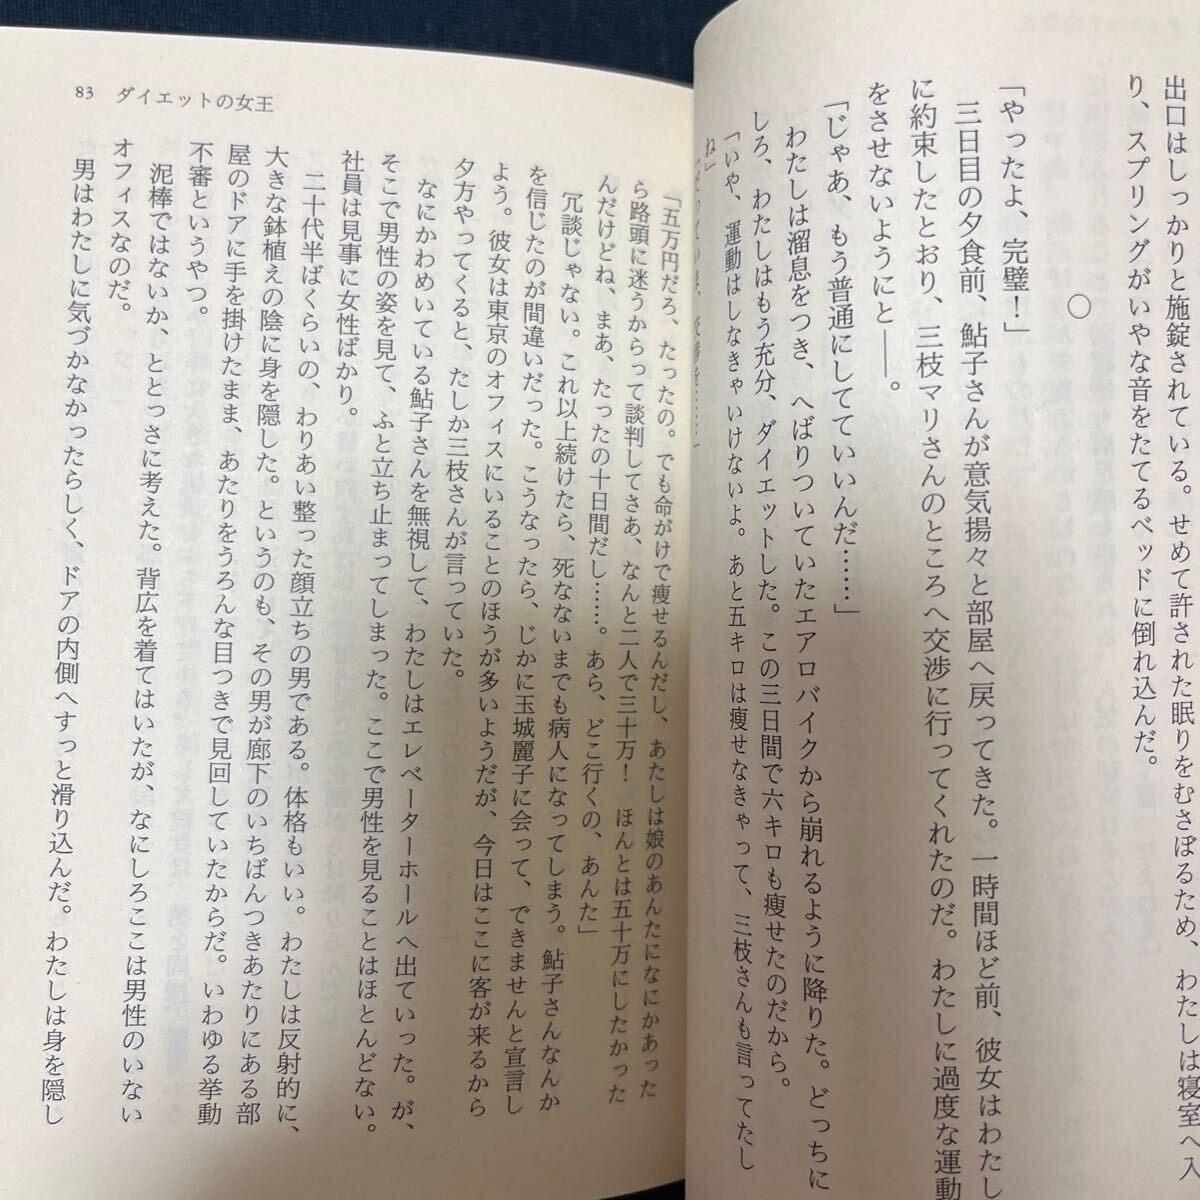 出口はしっかりと施錠されている。せめて許された眠りをむさぼるため、わたしは寝室へ入
り、スプリングがいやな音をたてるベッドに倒れ込んだ。
○
「やったよ、完璧！」
三日目の夕食前、鮎子さんが意気揚々と部屋へ戻ってきた。一時間ほど前、彼女はわたし
に約束したとおり、三枝マリさんのところへ交渉に行ってくれたのだ。わたしに過度な運動
をさせないようにと――。
「じゃあ、もう普通にしてていいんだ……」
わたしは溜息をつき、へばりついていたエアロバイクから崩れるように降りた。どっちに
しろ、わたしはもう充分、ダイエットした。この三日間で六キロも痩せたのだから。
「いや、運動はしなきゃいけないよ。あと五キロは痩せなきゃって、三枝さんも言ってたし
ね」
83 ダイエットの女王
「五万円だろ、たったの。でも命がけで痩せるんだし、あたしは娘のあんたになにかあった
ら路頭に迷うからって談判してさあ、なんと二人で三十万！　ほんとは五十万にしたかった
んだけどね、まあ、たったの十日間だし……。あら、どこ行くの、あんた」
冗談じゃない。これ以上続けたら、死なないまでも病人になってしまう。鮎子さんなんか
を信じたのが間違いだった。こうなったら、じかに玉城麗子に会って、できませんと宣言し
よう。彼女は東京のオフィスにいることのほうが多いようだが、今日はここに客が来るから
夕方やってくると、たしか三枝さんが言っていた。
なにかわめいている鮎子さんを無視して、わたしはエレベーターホールへ出ていった。が、
そこで男性の姿を見て、ふと立ち止まってしまった。ここで男性を見ることはほとんどない。
社員は見事に女性ばかり。
二十代半ばくらいの、わりあい整った顔立ちの男である。体格もいい。わたしは反射的に、
大きな鉢植えの陰に身を隠した。というのも、その男が廊下のいちばんつきあたりにある部
屋のドアに手を掛けたまま、あたりをうろんな目つきで見回していたからだ。いわゆる挙動
不審というやつ。
泥棒ではないか、ととっさに考えた。背広を着てはいたが、なにしろここは男性のいない
オフィスなのだ。
男はわたしに気づかなかったらしく、ドアの内側へすっと滑り込んだ。わたしは身を隠し